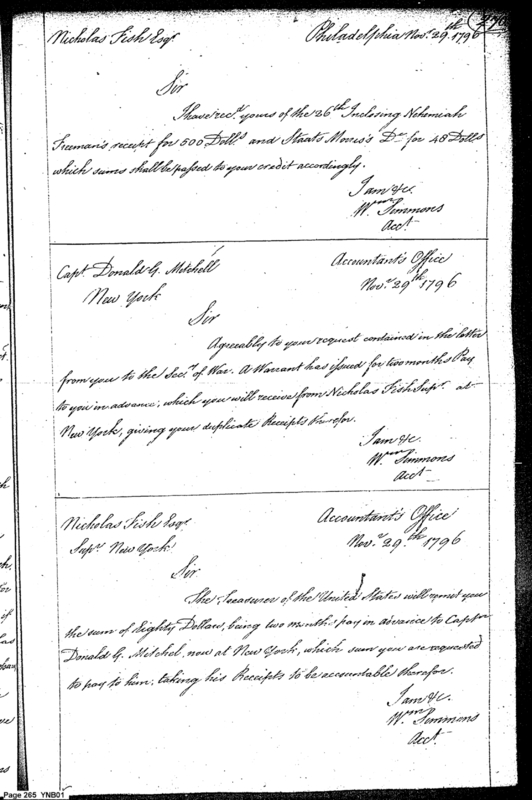 276
Nicholas Fish Esqr. Philadelphia Novr. 29th. 1796
Sir
I have recd. yours of the 26th Inclosing Nehemiah
Freeman's receipt for 500 Dolls. and Staats Morris's Do. for 48 Dolls
which sums shall be passed to your credit accordingly.
I am &c.
Wm Simmons
Acct.
Capt. Donald G. Mitchell Accountant's Office
New York Novr. 29th 1796
Sir
Agreeably to your request contained in the letter
from you to the Secy. of War. A Warrant has issued for two months Pay
to you in advance, which you will receive from Nicholas Fish Supr. at
New York, giving your duplicate Receipts therefor.
I am &c.
Wm Simmons
Acct.
Nicholas Fish Esqr. Accountant's Office
Supr. New York Novr. 29th. 1796
Sir
The Treasurer of the United States will remit you
the sum of Eighty Dollars, being two months pay in advance to Captn
Donald G. Mitchel, now at New York, which sum you are requested
to pay to him, taking his Receipts to be accountable therefor.
I am &c.
Wm Simmons
Acct.
Page 265 YNB01